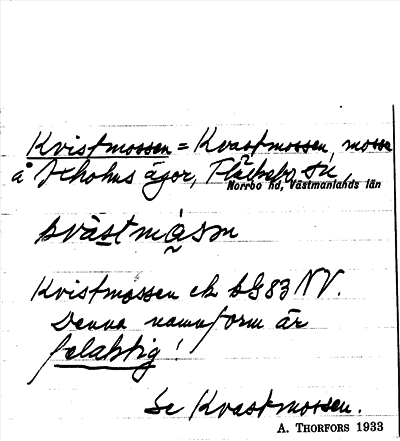 Kvistmossen = Kvastmossen, mosse
å ägor, Fläckebo sn,
Norrbo hd, Västmanlands län
kvàstmå̀sɷn
Kvistmossen ek bG83 NV.
Denna namnform är
felaktig!
Se Kvastmossen.
A. THORFORS 1933